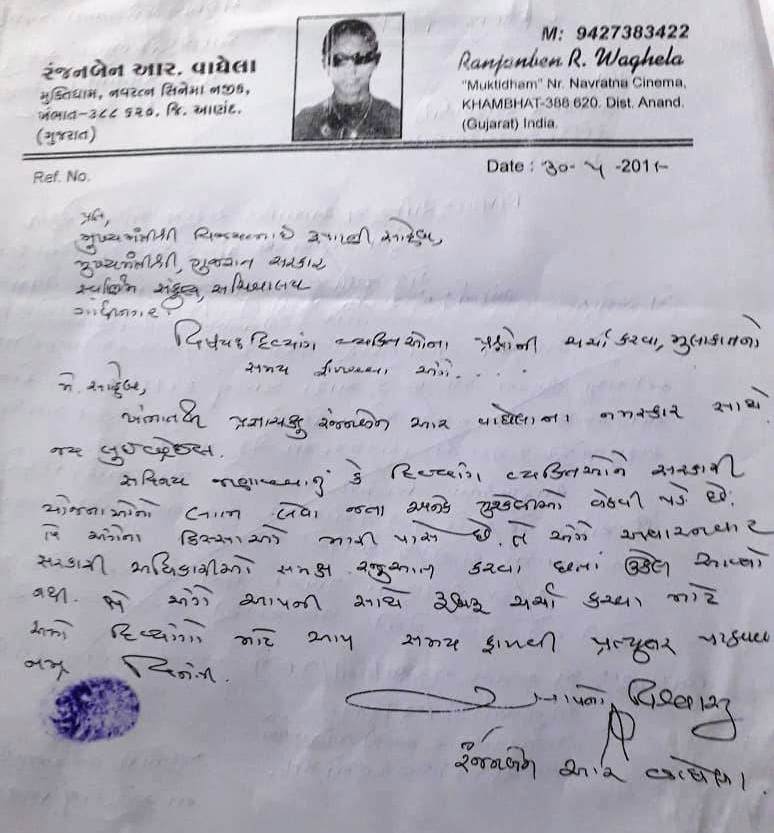 રંજનબેન આર. વાઘેલા
મુક્તિધામ, નવરત્ન સિનેમા નજીક,
ખંભાત-૩૮૮ ૬૨૦. જિ. આણંદ.
(ગુજરાત)
M: 9427383422
Ranjanben R. Waghela
"Muktidham" Nr. Navratna Cinema,
KHAMBHAT-388 620. Dist. Anand.
(Gujarat) India.
Ref. No.
Date : ૩૦- ૫ -201
પ્રતિ,
મુખ્યમંત્રીશ્રી વિજયભાઈ રૂપાણી સાહેબ,
મુખ્યમંત્રીશ્રી, ગુજરાત સરકાર
સ્વર્ણિમ સંકુલ, સચિવાલય
ગાંધીનગર
વિષય દિવ્યાંગ વ્યક્તિઓના પ્રશ્નોની ચર્ચા કરવા, મુલાકાતનો
સમય ફાળવવા અંગે. . . .
મે. સાહેબ,
ખંભાતથી પ્રજ્ઞાચક્ષુ રંજનબેન આર વાઘેલાના નમસ્કાર સાથે
જય લુઈબ્રેઈલ.
સવિનય જણાવવાનું કે દિવ્યાંગ વ્યક્તિઓને સરકારી
યોજનાઓનો લાભ લેવા જતા અનેક મુશ્કેલીઓ વેઠવી પડે છે.
તે અંગેના કિસ્સાઓ મારી પાસે છે. તે અંગે અવારનવાર
સરકારી અધિકારીઓ સમક્ષ રજુઆત કરવા છતાં ઉકેલ આવ્યો
નથી. જે અંગે આપની સાથે રૂબરૂ ચર્ચા કરવા માટે
અમો દિવ્યાંગો માટે આપ સમય ફાળવી પ્રત્યુત્તર પાઠવવા
નમ્ર વિનંતી.
આપનો વિશ્વાસુ
રંજનબેન આર વાઘેલા.